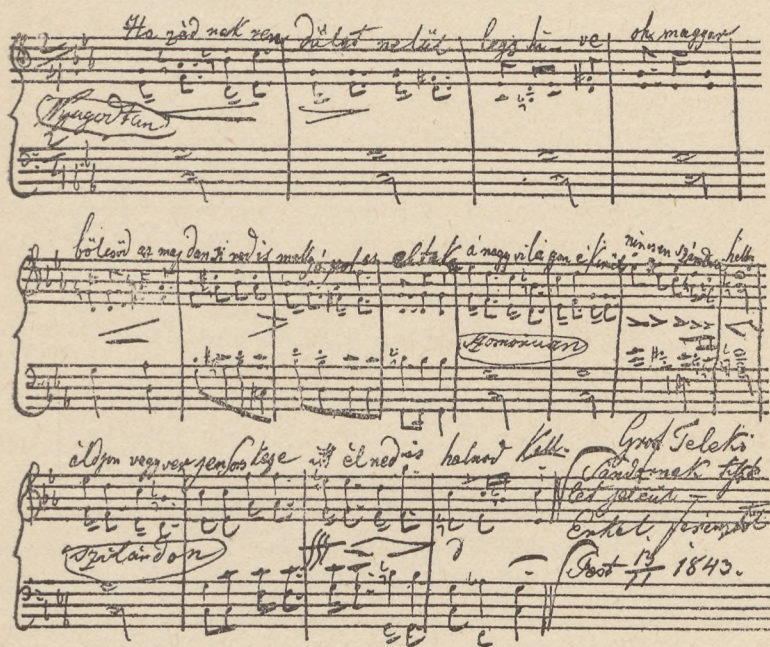 Ha zád nak ren dület nelűl légy hi ve oh magyar
Nyugodtan
bölcsőd az maj dan si rod is mely ápol az eltaka
á nagy vilá gon e kivül nincsen számodra hely
Szomorúan
áldjon vagy verjen sors keze itt élned és halnod Kell.
szilárdon
Grof Teleki
Sándornak
Erkel Ferencz
Pest 13/11 1843.